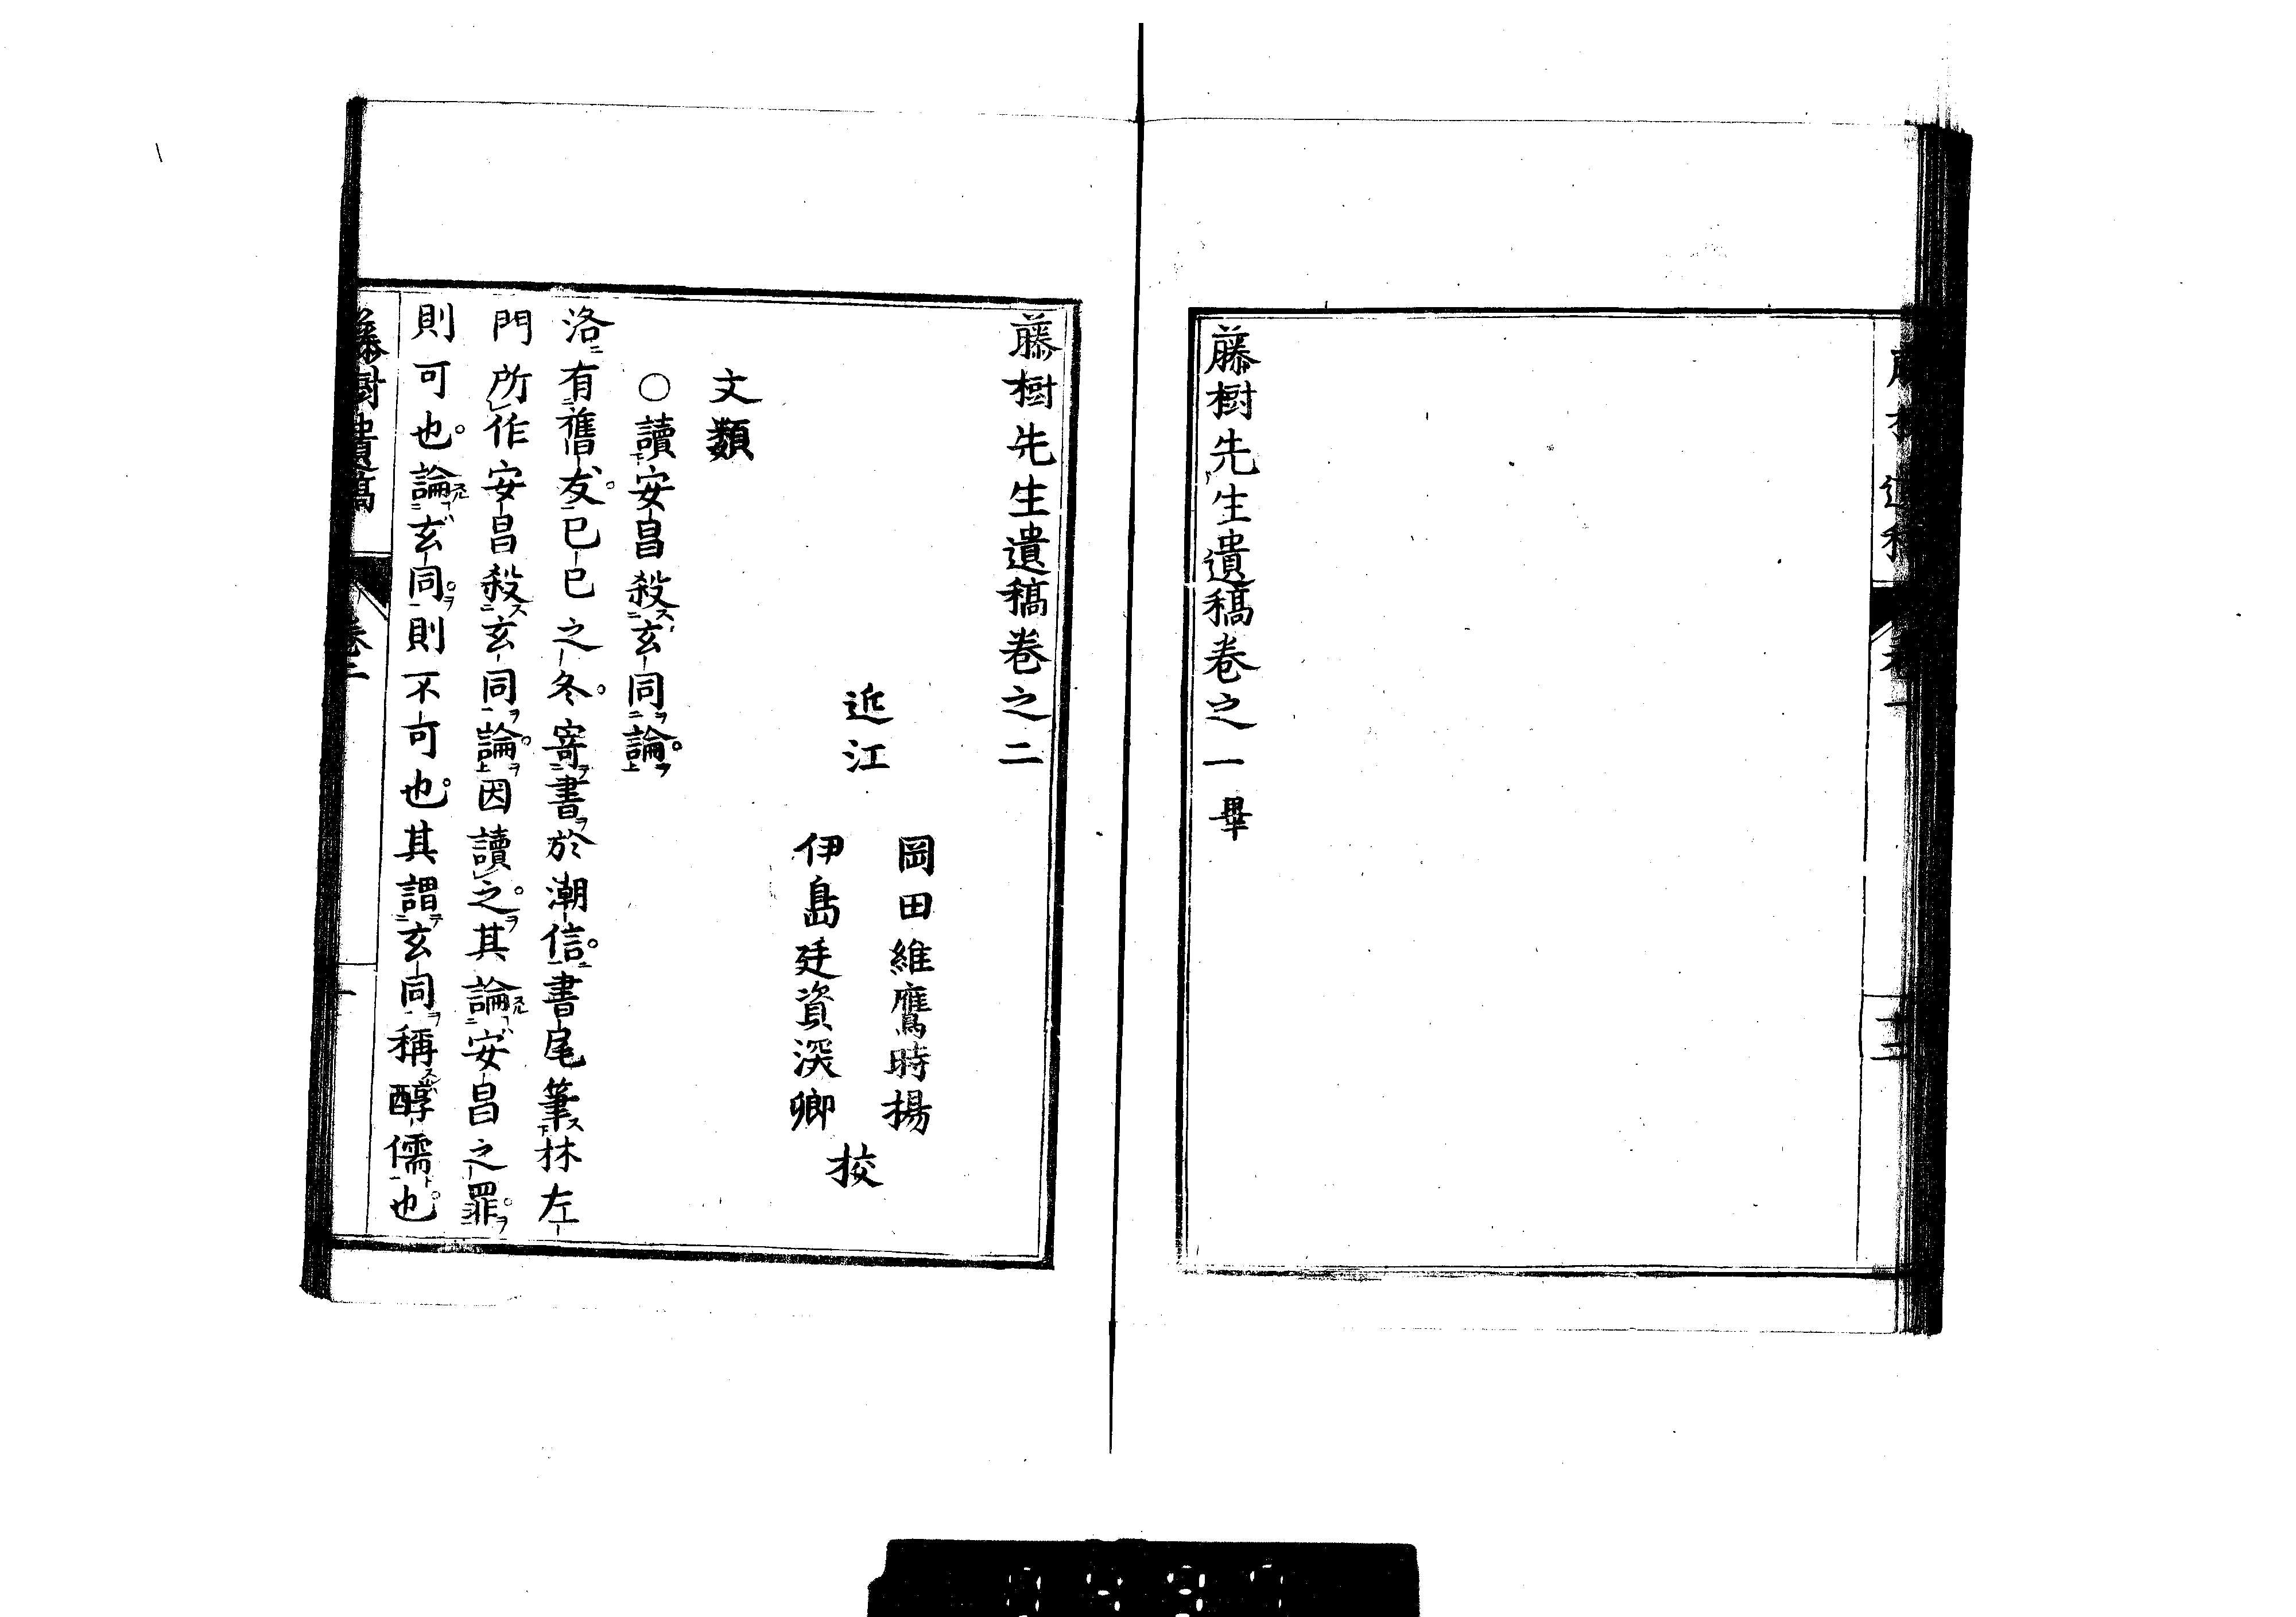 藤樹先生遺稿卷之一畢
藤樹先生遺稿卷之二
岡田維鷹時揚
近江
伊島廷資深卿
挍
文類
○讀安昌殺玄同論
洛有舊友己巳之冬寄書於潮信書尾筆林左
門所作安昌殺玄同論因讀之其論安昌之罪
則可也論玄同則不可也其謂玄同稱醇儒也
藤樹遺稿
卷二
一